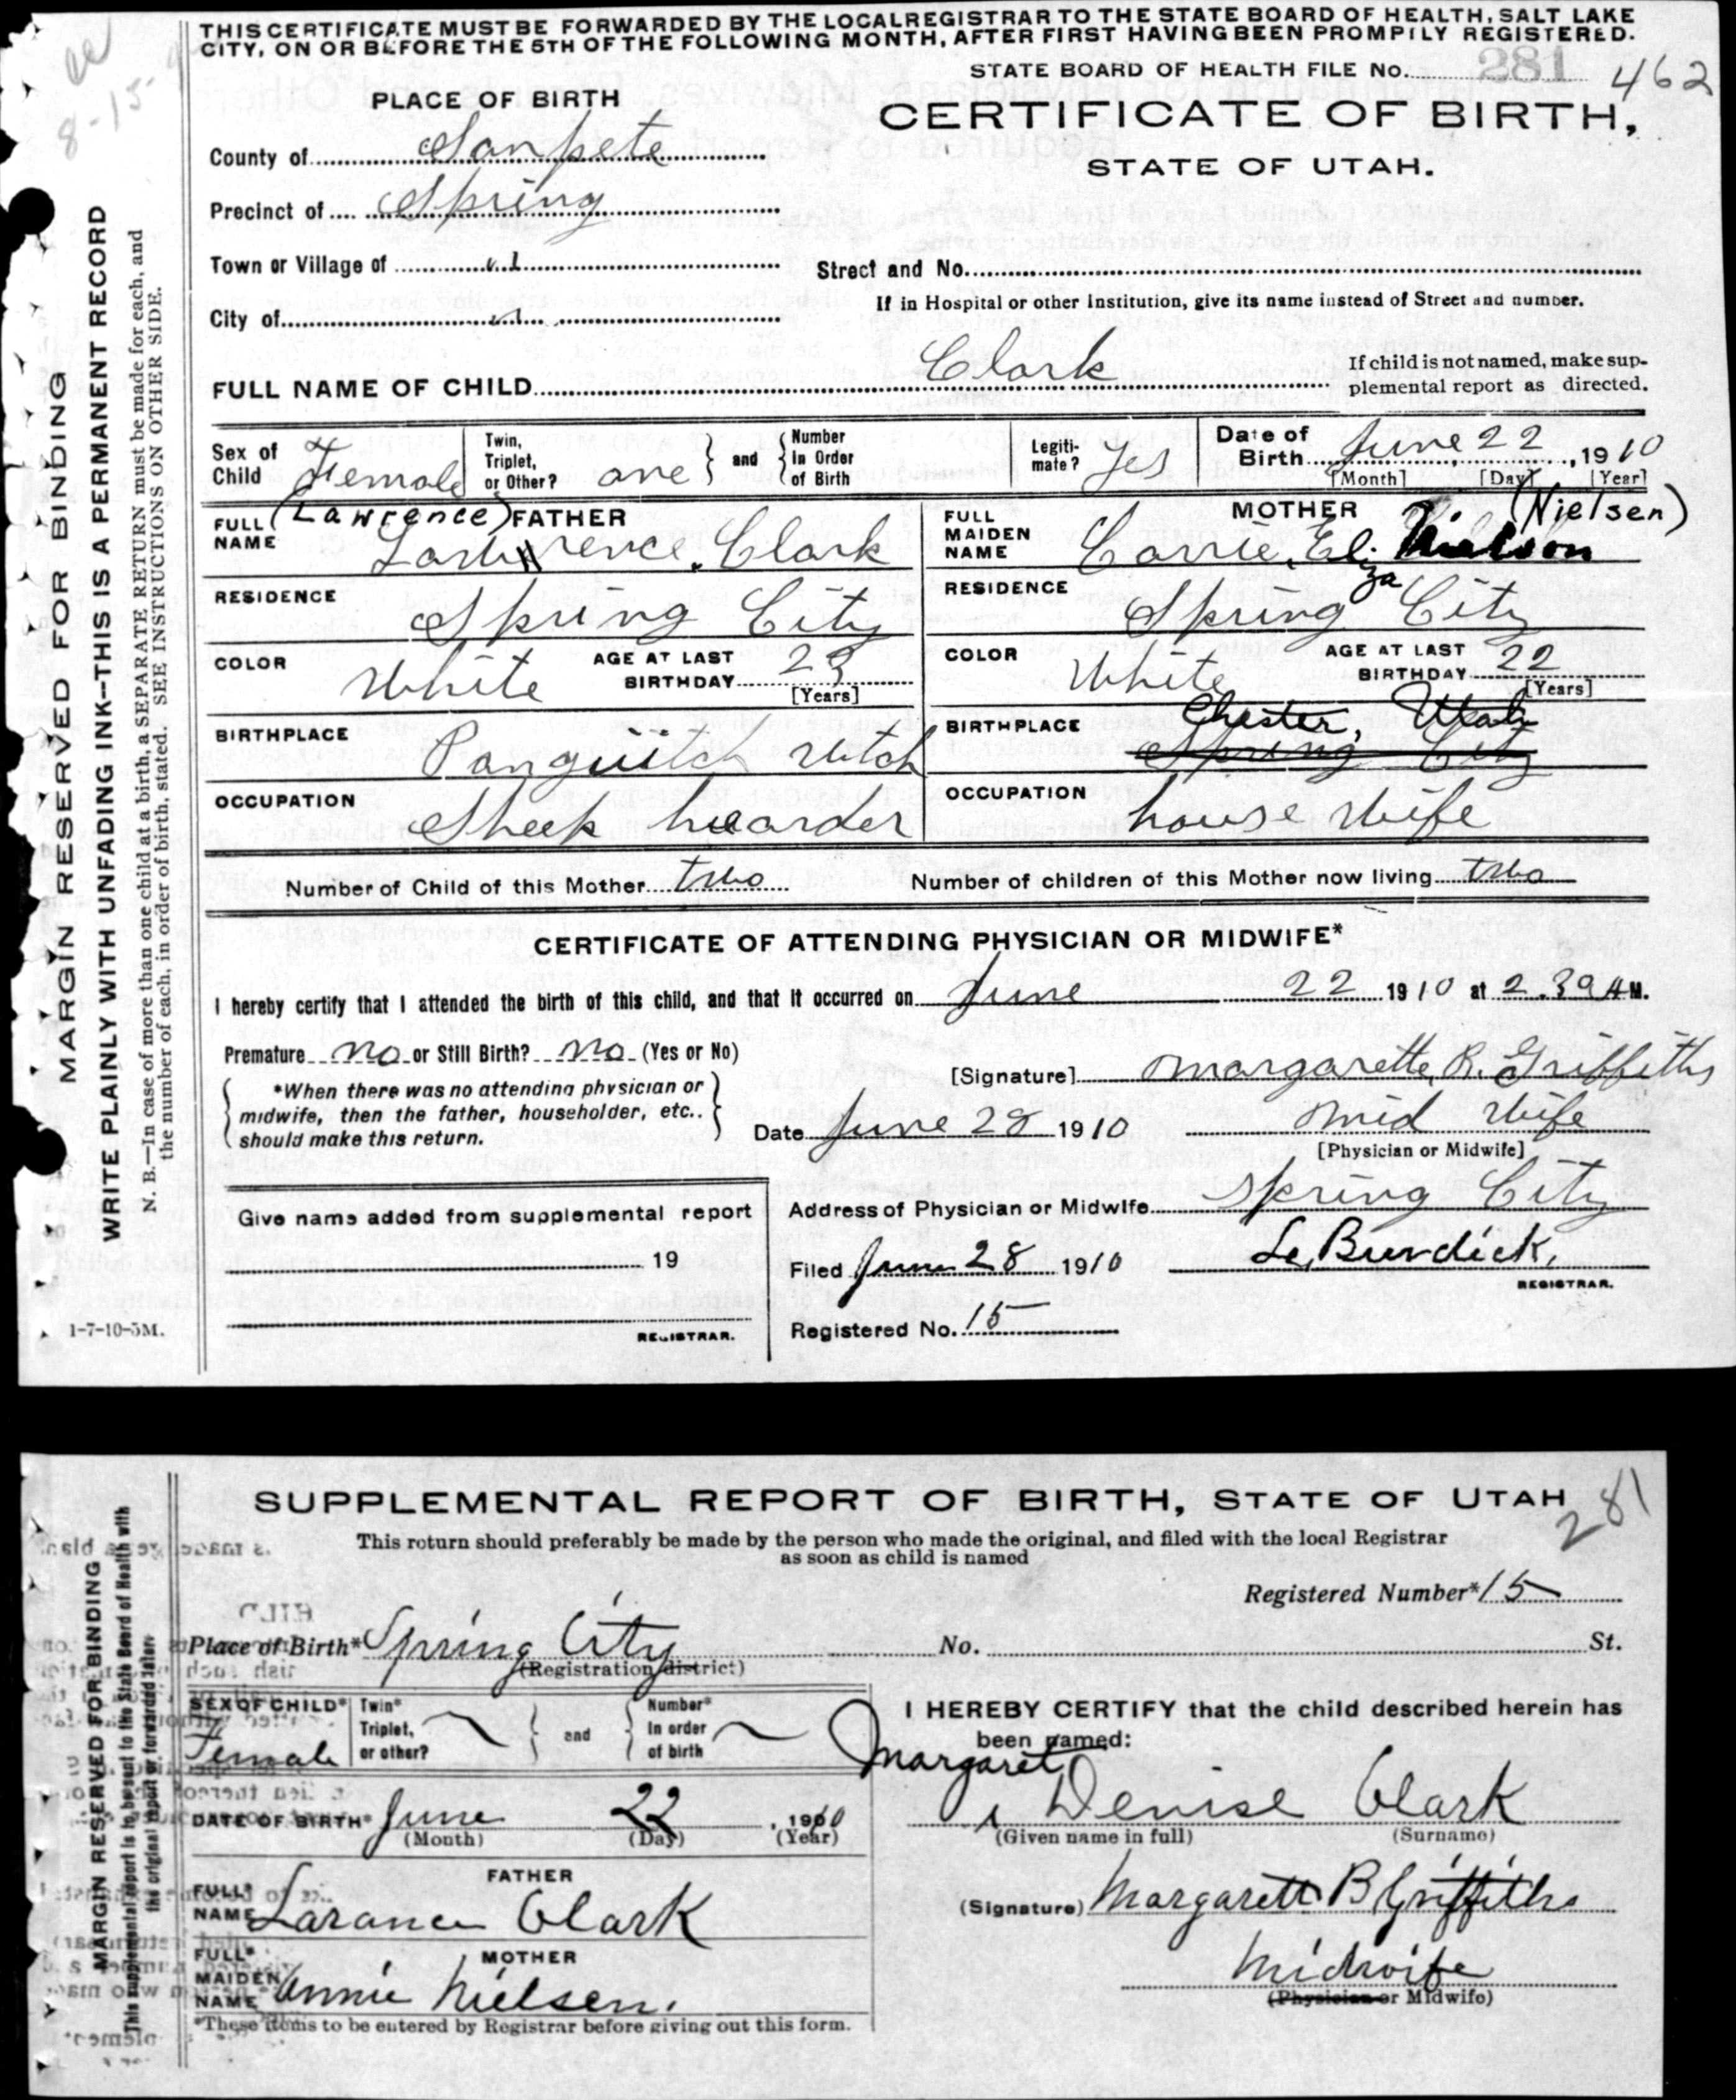 THIS CERTIFICATE MUST BE FORWARDED BY THE LOCAL REGISTRAR TO THE STATE BOARD OF HEALTH, SALT LAKE
CITY, ON OR BEFORE THE 5TH OF THE FOLLOWING MONTH, AFTER FIRST HAVING BEEN PROMPTLY REGISTERED.
8-15-
STATE BOARD OF HEALTH FILE No. 281 462
PLACE OF BIRTH
CERTIFICATE OF BIRTH,
STATE OF UTAH.
County of Sanpete
Precinct of Spring
Town or Village of "
Street and No.
If in Hospital or other Institution, give its name instead of Street and number.
City of "
FULL NAME OF CHILD Clark
If child is not named, make sup-
plemental report as directed.
Sex of Child Female
Twin, Triplet, or Other? one } and { Number In Order of Birth
Legiti-mate? yes
Date of Birth June 22, 1910
[Month] [Day] [Year]
FATHER
FULL NAME (Lawrence) Larwrence. Clark
MOTHER
FULL MAIDEN NAME Carrie, Eliza Nielson (Nielsen)
RESIDENCE Spring City
RESIDENCE Spring City
COLOR White AGE AT LAST BIRTHDAY 23 [Years]
COLOR White AGE AT LAST BIRTHDAY 22 [Years]
BIRTHPLACE Panguitch Utah
BIRTHPLACE Chester, Utah
Spring City
OCCUPATION Sheep hearder
OCCUPATION house Wife
Number of Child of this Mother two
Number of children of this Mother now living two
CERTIFICATE OF ATTENDING PHYSICIAN OR MIDWIFE*
I hereby certify that I attended the birth of this child, and that it occurred on June 22 1910 at 2.30 A M.
Premature no or Still Birth? no (Yes or No)
*When there was no attending physician or
midwife, then the father, householder, etc..
should make this return.
[Signature] Margarette, B. Griffiths
Date June 28 1910
Mid Wife
[Physician or Midwife]
Give name added from supplemental report
19
REGISTRAR.
Address of Physician or Midwife Spring City
Filed June 28 1910
Burdick,
REGISTRAR.
Registered No. 15
1-7-10-5M.
MARGIN RESERVED FOR BINDING
WRITE PLAINLY WITH UNFADING INK-THIS IS A PERMANENT RECORD
N. B.—In case of more than one child at a birth, a SEPARATE RETURN must be made for each, and
the number of each, in order of birth, stated. SEE INSTRUCTIONS ON OTHER SIDE.
SUPPLEMENTAL REPORT OF BIRTH, STATE OF UTAH
281
This return should preferably be made by the person who made the original, and filed with the local Registrar
as soon as child is named
Registered Number* 15
Place of Birth* Spring City No. St.
(Registration district)
SEX OF CHILD* Female
Twin* Triplet, or other? } and { Number* In order of birth
DATE OF BIRTH* June 22, 1910
(Month) (Day) (Year)
FATHER
FULL* NAME Larance Clark
MOTHER
FULL* MAIDEN NAME Annie Nielsen.
*These items to be entered by Registrar before giving out this form.
I HEREBY CERTIFY that the child described herein has
been named:
Margaret
Denise Clark
(Given name in full) (Surname)
(Signature) Margarett B Griffiths
Midwife
(Physician or Midwife)
MARGIN RESERVED FOR BINDING
This supplemental report is to be sent to the State Board of Health with
the original report or forwarded later.